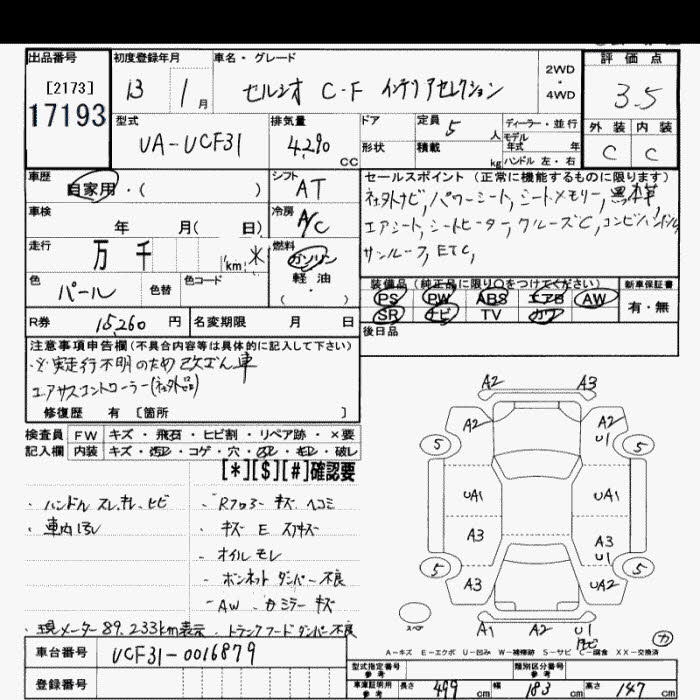 出品番号
[2173]
17193
初度登録年月
13 1 月
車名・グレード
セルシオ C-F インテリアセレクション
2WD
・
4WD
評価点
3.5
外装 内装
C C
型式
UA-UCF31
排気量
4,290 CC
ドア
形状
定員 5 人
積載 kg
ディーラー・並行
モデル
年式 年
ハンドル 左・右
車歴
自家用・( )
シフト
AT
車検
年 月( 日)
冷房
A/C
走行
万 千 km *
燃料
ガソリン
軽油
( ・ )
色
パール
色替
色コード
R券 15,260 円
名変期限 月 日
セールスポイント (正常に機能するものに限ります)
社外ナビ, パワーシート, シートメモリー, 黒本革
エアシート, シートヒーター, クルーズC, コンビハンドル
サンルーフ, ETC,
装備品 (純正品に限り〇をつけてください)
PS PW ABS エアB AW
SR ナビ TV カワ
新車保証書
有・無
後日品
注意事項申告欄(不具合内容等は具体的に記入して下さい)
※実走行不明のため改ざん車
エアサスコントローラー(社外品)
修復歴 有 [箇所 ]
検査員 FW キズ・飛石・ヒビ割・リペア跡・×要
記入欄 内装 キズ・汚レ・コゲ・穴・凹レ・キレ・破レ
[*][$][#]確認要
・ハンドル スレ、キレ、ヒビ
・車内汚レ
・Rフロアー キズ ヘコミ
・キズ E スリキズ
・オイルモレ
・ボンネット ダンパー不良
・AW、カミラー キズ
・現メーター 89,233km表示 ・トランクフードダンパー不良
A2 A3
A2
A2
U1
5 5
UA1 UA1
A3 A3
U1
5 5
A3 UA2
スペア
A1 A2 U1
カ
A-キズ E-エクボ U-凹み W-補修跡 S-サビ C-腐食 XX-交換済
車台番号 UCF31-0016879
登録番号
型式指定番号
参考
類別区分番号
参考
車庫証明用
参考
長さ 499 cm 幅 183 cm 高さ 147 cm